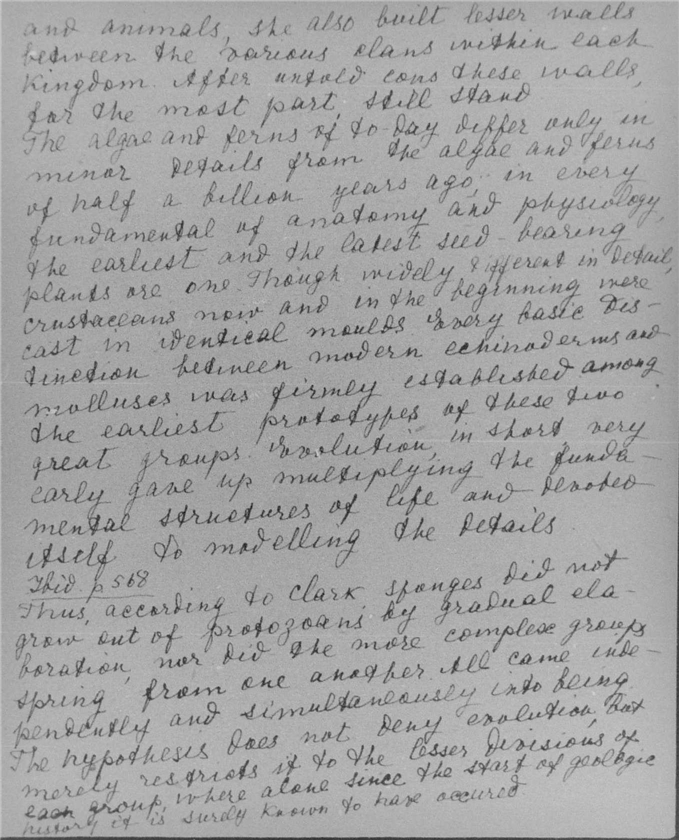 and animals, she also built lesser walls
between the various clans within each
Kingdom. After untold eons these walls,
for the most part, still stand
The algae and ferns of to-day differ only in
minor details from the algae and ferns
of half a billion years ago; in every
fundamental of anatomy and physiology,
the earliest and the latest seed-bearing
plants are one. Though widely different in detail,
crustaceans now and in the beginning were
cast in identical moulds. Every basic dis-
tinction between modern echinoderms and
molluscs was firmly established among
the earliest prototypes of these two
great groups. Evolution, in short, very
early gave up multiplying the funda-
mental structures of life and devoted
itself to modelling the details
Ibid. p 568
Thus, according to Clark sponges did not
grow out of protozoans by gradual ela-
boration, nor did the more complex groups
spring from one another. All came inde-
pendently and simultaneously into being
The hypothesis does not deny evolution, but
merely restricts it to the lesser divisions of
each group, where alone since the start of geologic
history it is surely known to have occured